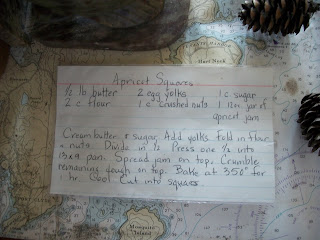 Apricot Squares
½ lb butter 2 egg yolks 1 c sugar
2 c flour 1 c crushed nuts 1 12oz. jar of
apricot jam
Cream butter & sugar. Add yolks. Fold in flour
& nuts. Divide in ½. Press one ½ into
13x9 pan. Spread jam on top. Crumble
remaining dough on top. Bake at 350° for
1 hr. Cool. Cut into squares.
Mosquito
Island